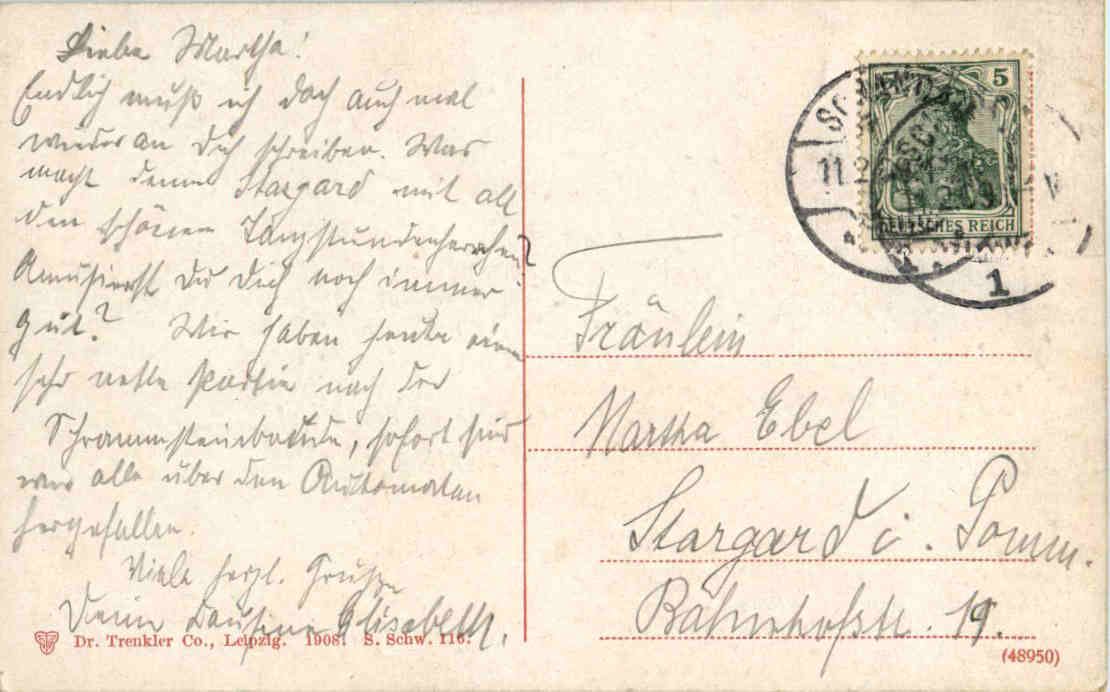 Liebe Martha!
Endlich muß ich doch auch mal
wieder an Dich schreiben. Was
macht denn Stargard mit all
den schönen Tanzstundenherrchen?
Amüsierst Du Dich noch immer
gut? Wir haben heute eine
sehr nette Partie nach der
Schrammsteinbaude, sofort sind
wir alle über den Automaten
hergefallen.
Viele herzl. Grüße
Deine Elisabeth.
Dr. Trenkler Co., Leipzig. 1908. S. Schw. 116.
5
DEUTSCHES REICH
1
Fräulein
Martha Ebel
Stargard i. Pomm.
Bahnhofstr. 19.
(48950)